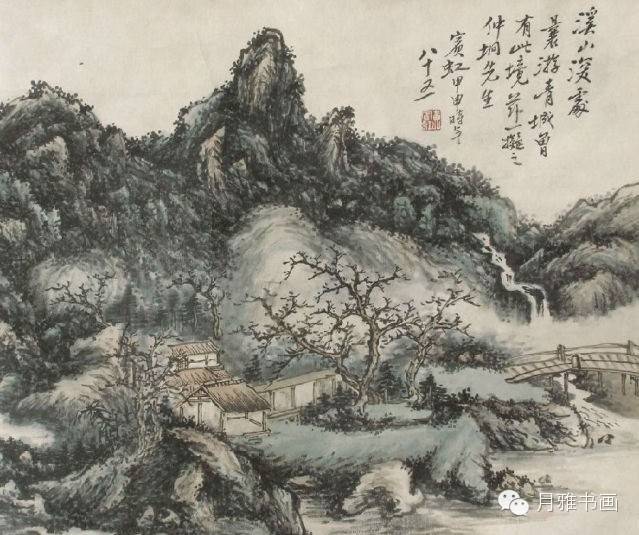 溪山深處
曩游青城曾
有此境茲一擬之
仲坰先生
賓虹甲申時年
八十又一
月雅书画